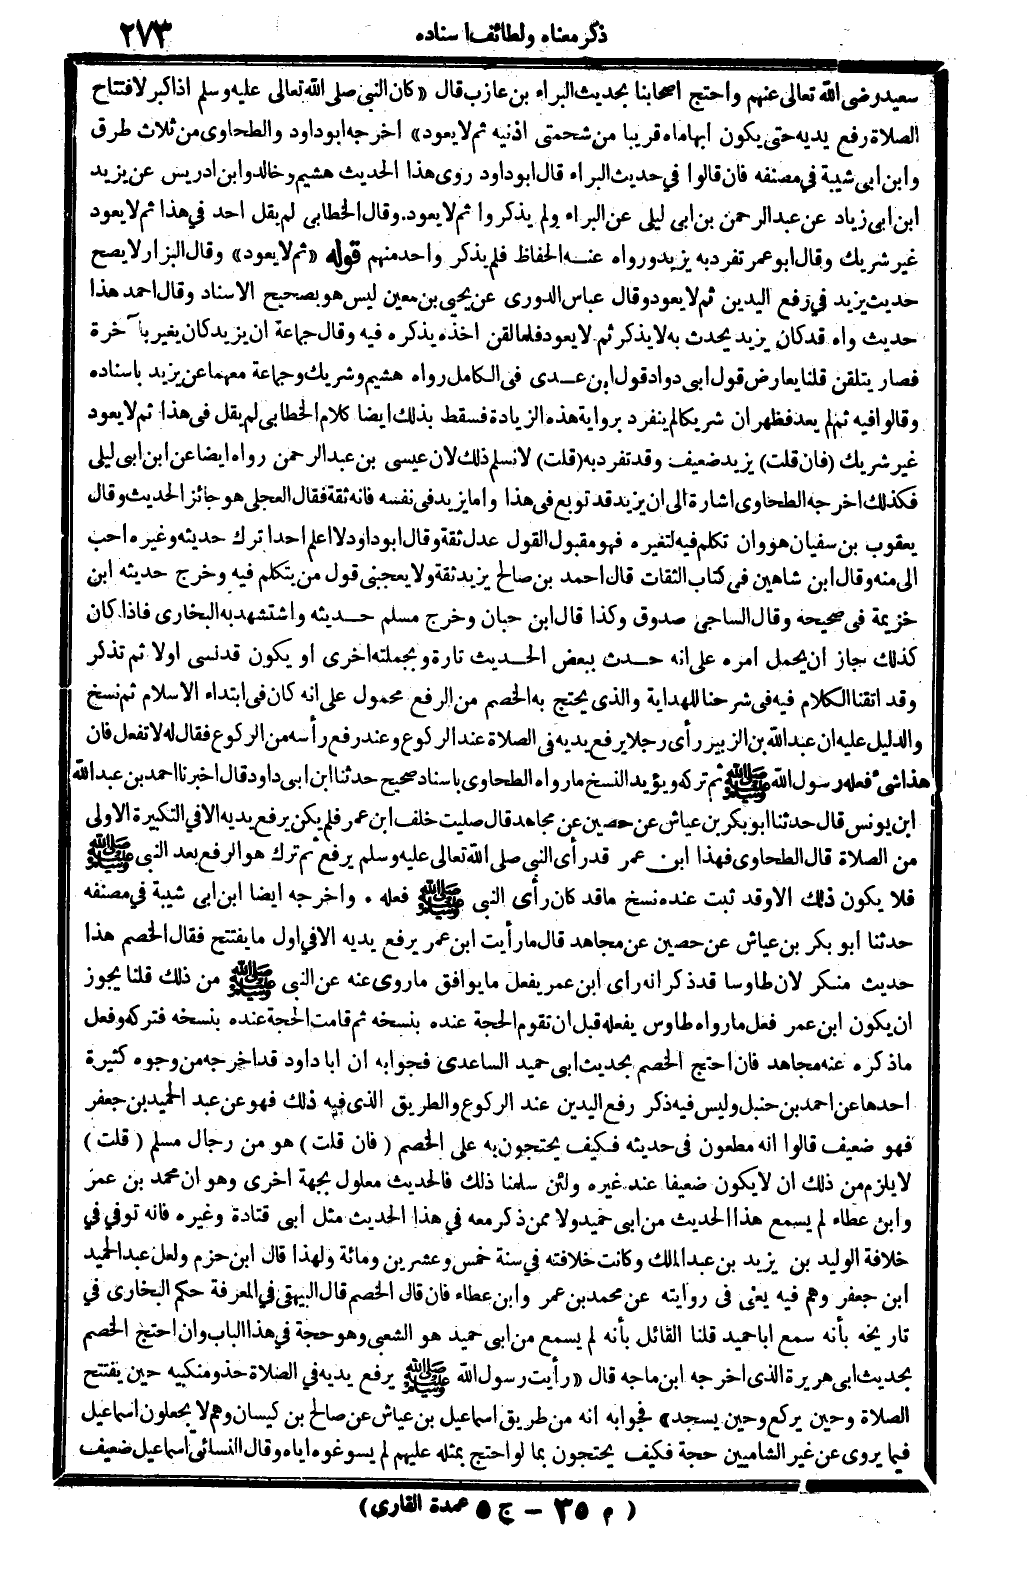 ذكر معناه ولطائف اسناده ٢٧٣
سعيد رضى الله تعالى عنهم واحتج اصحابنا بحديث البراء بن عازب قال «كان النبي صلى الله تعالى عليه وسلم اذا كبر لافتتاح
الصلاة رفع يديه حتى يكون ابهاماه قريبا من شحمتى اذنيه ثم لا يعود» اخرجه ابو داود والطحاوى من ثلاث طرق
وابن ابى شيبة في مصنفه فان قالوا في حديث البراء قال ابو داود روى هذا الحديث هشيم وخالد وابن ادريس عن يزيد
ابن ابى زياد عن عبد الرحمن بن ابى ليلى عن البراء ولم يذكروا ثم لا يعود. وقال الخطابى لم يقل احد في هذا ثم لا يعود
غير شريك وقال ابو عمر تفرد به يزيد ورواه عنه الحفاظ فلم يذكر واحد منهم قوله «ثم لا يعود» وقال البزار لا يصح
حديث يزيد في رفع اليدين ثم لا يعود وقال عباس الدورى عن يحيى بن معين ليس هو بصحيح الاسناد وقال احمد هذا
حديث واه قد كان يزيد يحدث به لا يذكر ثم لا يعود فلما لقن اخذه يذكره فيه وقال جماعة ان يزيد كان يغير بآخرة
فصار يتلقن قلنا يعارض قول ابى دواد قول ابن عدى فى الكامل رواه هشيم وشريك وجماعة معهما عن يزيد باسناده
وقالوا فيه ثم لم يعد فظهر ان شريكا لم ينفرد برواية هذه الزيادة فسقط بذلك ايضا كلام الخطابى لم يقل فى هذا ثم لا يعود
غير شريك (فان قلت) يزيد ضعيف وقد تفرد به (قلت) لا نسلم ذلك لان عيسى بن عبد الرحمن رواه ايضا عن ابن ابى ليلى
فكذلك اخرجه الطحاوى اشارة الى ان يزيد قد توبع فى هذا واما يزيد فى نفسه فانه ثقة فقال العجلى هو جائز الحديث وقال
يعقوب بن سفيان هو وان تكلم فيه لتغيره فهو مقبول القول عدل ثقة وقال ابو داود لا اعلم احدا ترك حديثه وغيره احب
الى منه وقال ابن شاهين فى كتاب الثقات قال احمد بن صالح يزيد ثقة ولا يعجبنى قول من يتكلم فيه وخرج حديثه ابن
خزيمة فى صحيحه وقال الساجى صدوق وكذا قال ابن حبان وخرج مسلم حديثه واشتشهد به البخارى فاذا كان
كذلك جاز ان يحمل امره على انه حدث ببعض الحديث تارة وبجملته اخرى او يكون قد نسى اولا ثم تذكر
وقد اتقنا الكلام فيه فى شرحنا للهداية والذى يحتج به الخصم من الرفع محمول على انه كان فى ابتداء الاسلام ثم نسخ
والدليل عليه ان عبد الله بن الزبير رأى رجلا يرفع يديه فى الصلاة عند الركوع وعند رفع رأسه من الركوع فقال له لا تفعل فان
هذا شىء فعله رسول الله ﷺ ثم تركه ويؤيد النسخ ما رواه الطحاوى باسناد صحيح حدثنا ابن ابى داود قال اخبرنا احمد بن عبد الله
ابن يونس قال حدثنا ابو بكر بن عياش عن حصين عن مجاهد قال صليت خلف ابن عمر فلم يكن يرفع يديه الا في التكبيرة الاولى
من الصلاة قال الطحاوى فهذا ابن عمر قد رأى النبي صلى الله تعالى عليه وسلم يرفع ثم ترك هو الرفع بعد النبي ﷺ
فلا يكون ذلك الا وقد ثبت عنده نسخ ما قد كان رأى النبى ﷺ فعله . واخرجه ايضا ابن ابى شيبة في مصنفه
حدثنا ابو بكر بن عياش عن حصين عن مجاهد قال ما رأيت ابن عمر يرفع يديه الا في اول ما يفتتح فقال الخصم هذا
حديث منكر لان طاوسا قد ذكر انه راى ابن عمر يفعل ما يوافق ما روى عنه عن النبى ﷺ من ذلك قلنا يجوز
ان يكون ابن عمر فعل ما رواه طاوس يفعله قبل ان تقوم الحجة عنده بنسخه ثم قامت الحجة عنده بنسخه فتركه وفعل
ما ذكره عنه مجاهد فان احتج الخصم بحديث ابى حميد الساعدى فجوابه ان ابا داود قد اخرجه من وجوه كثيرة
احدها عن احمد بن حنبل وليس فيه ذكر رفع اليدين عند الركوع والطريق الذى فيه ذلك فهو عن عبد الحميد بن جعفر
فهو ضعيف قالوا انه مطعون فى حديثه فكيف يحتجون به على الخصم ( فان قلت ) هو من رجال مسلم ( قلت )
لا يلزم من ذلك ان لا يكون ضعيفا عند غيره ولئن سلمنا ذلك فالحديث معلول بجهة اخرى وهو ان محمد بن عمر
وابن عطاء لم يسمع هذا الحديث من ابى حميد ولا ممن ذكر معه في هذا الحديث مثل ابى قتادة وغيره فانه توفي في
خلافة الوليد بن يزيد بن عبد الملك وكانت خلافته في سنة خمس وعشرين ومائة ولهذا قال ابن حزم ولعل عبد الحميد
ابن جعفر وهم فيه يعنى فى روايته عن محمد بن عمر وابن عطاء فان قال الخصم قال البيهقى في المعرفة حكم البخارى في
تاريخه بأنه سمع ابا حميد قلنا القائل بأنه لم يسمع من ابى حميد هو الشعبى وهو حجة في هذا الباب وان احتج الخصم
بحديث ابى هريرة الذى اخرجه ابن ماجه قال «رأيت رسول الله ﷺ يرفع يديه في الصلاة حذو منكبيه حين يفتتح
الصلاة وحين يركع وحين يسجد» فجوابه انه من طريق اسماعيل بن عياش عن صالح بن كيسان وهم لا يجعلون اسماعيل
فيما يروى عن غير الشاميين حجة فكيف يحتجون بما لو احتج بمثله عليهم لم يسوغوه اياه وقال النسائى اسماعيل ضعيف
( م ٣٥ – ج ٥ عمدة القارى )